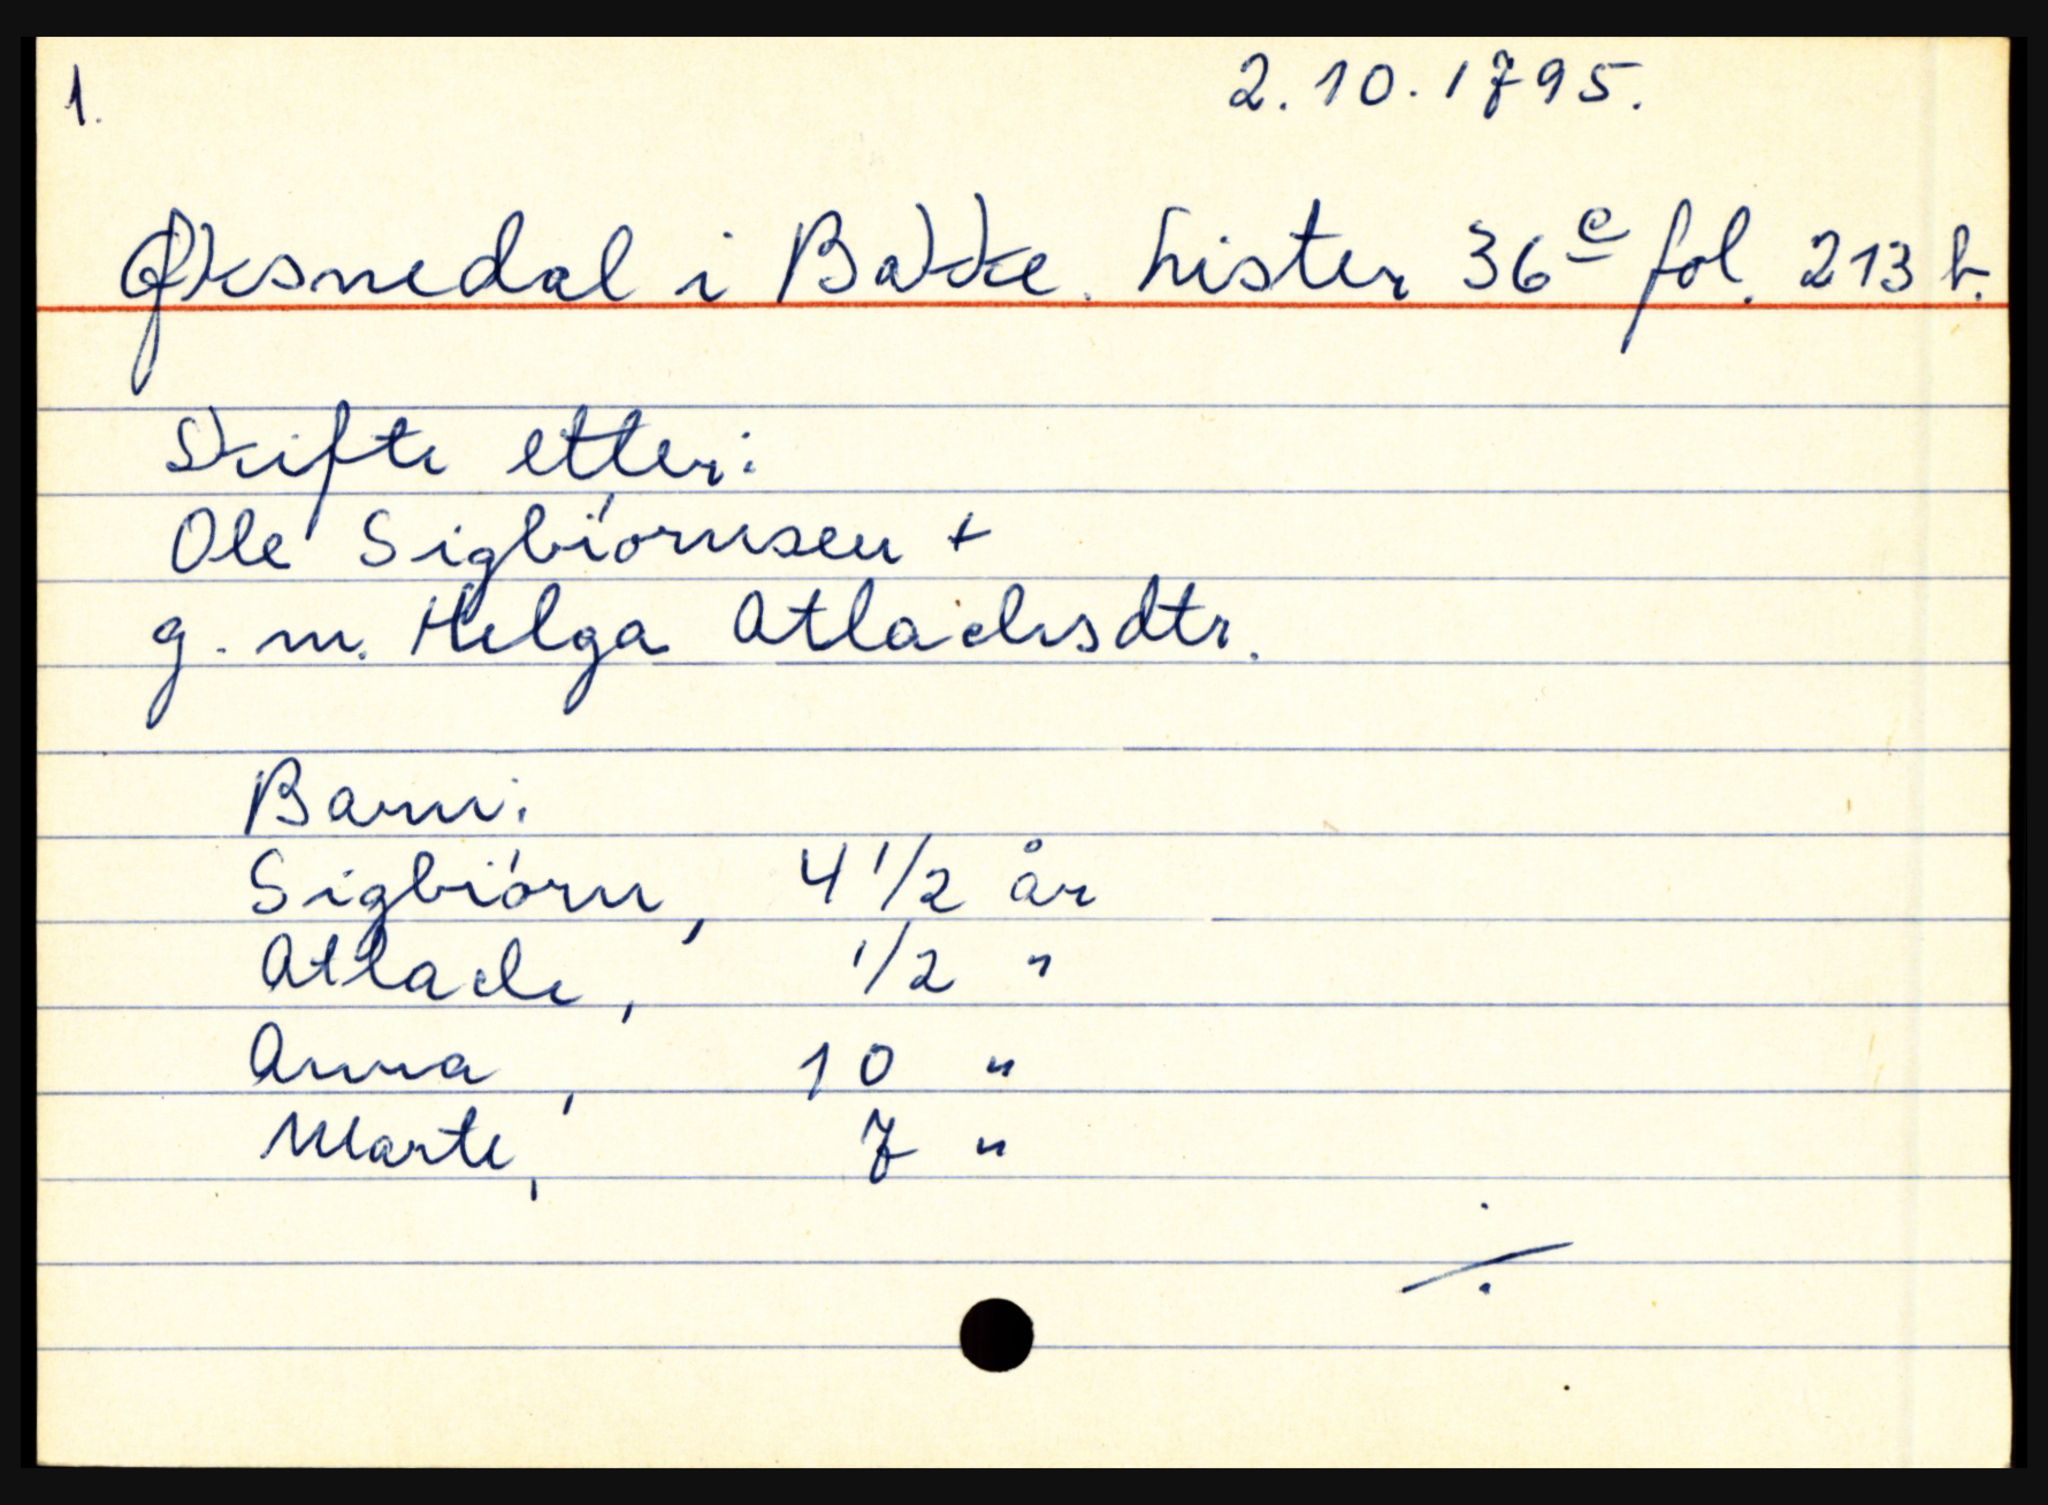 1. 2.10.1795.
Øksnedal i Bakke. Lister 36 c fol. 213 b.
Skifte etter:
Ole Sigbiórnsen +
g. m. Helga Atlachsdtr.
Barn:
Sigbiórn, 4 1/2 år
Atlach, 1/2 "
Anna, 10 "
Marte, 7 "
./.